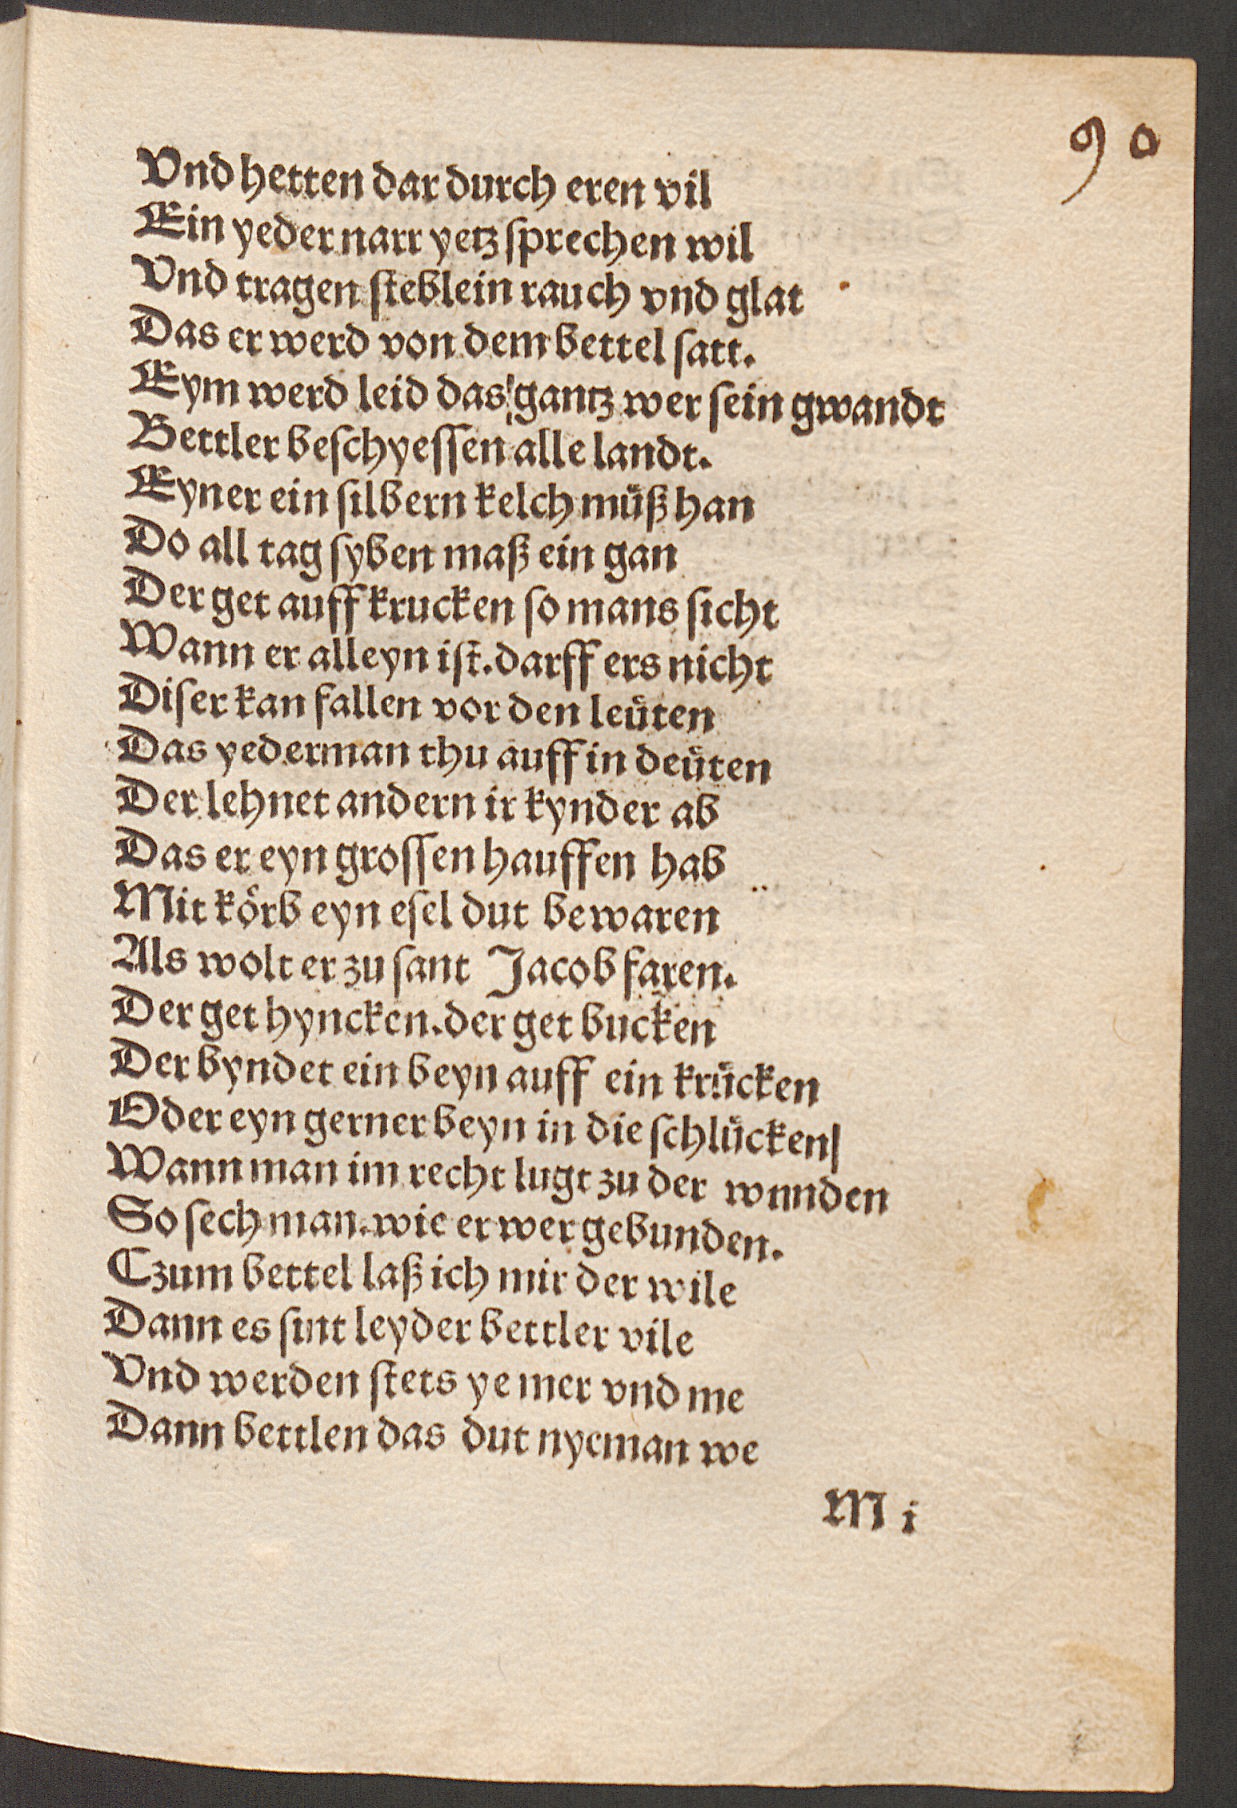 90
Vnd hetten dar durch eren vil
Ein yeder narr yetz ſprechen wil
Vnd tragen ſteblein rauch vnd glat
Das er werd von dem bettel ſatt.
Eym werd leid das gantz wer ſein gwandt
Bettler beſchyeſſen alle landt.
Eyner ein ſilbern kelch muͤß han
Do all tag ſyben maß ein gan
Der get auff krucken ſo mans ſicht
Wann er alleyn iſt. darff ers nicht
Diſer kan fallen vor den leuͤten
Das yederman thu auff in deuͤten
Der lehnet andern ir kynder ab
Das er eyn groſſen hauffen hab
Mit koͤrb eyn eſel dut bewaren
Als wolt er zu ſant Jacob faren.
Der get hyncken. der get bucken
Der byndet ein beyn auff ein kruͤcken
Oder eyn gerner beyn in die ſchluͤcken|
Wann man im recht lugt zu der wunden
So ſech man. wie er wer gebunden.
Czum bettel laß ich mir der wile
Dann es ſint leyder bettler vile
Vnd werden ſtets ye mer vnd me
Dann bettlen das dut nyeman we
M i